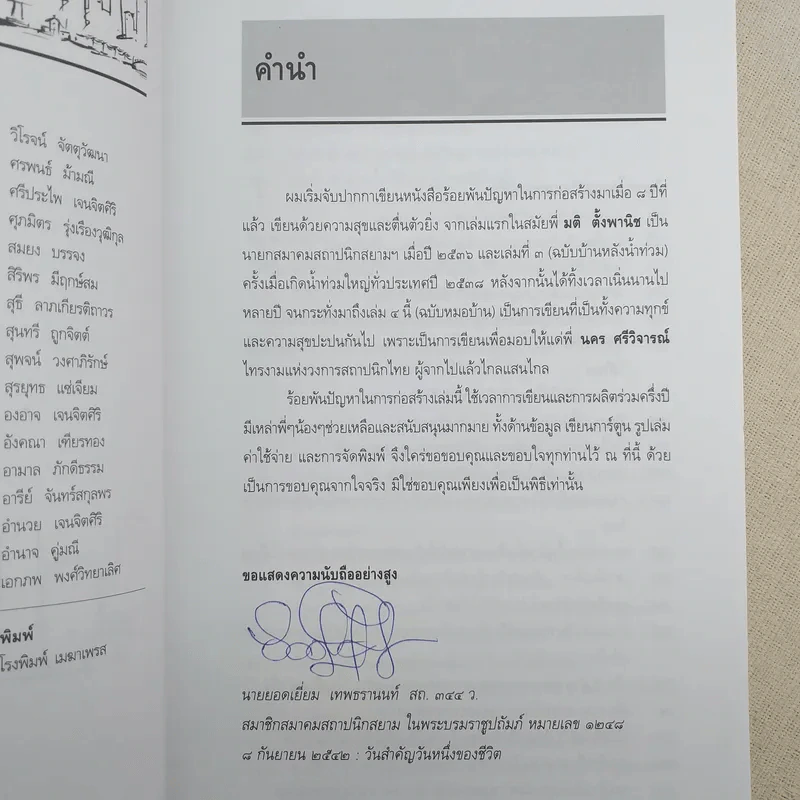 วิโรจน์ จัตตุวัฒนา
ศรพนธ์ ม้ามณี
ศรีประไพ เจนจิตศิริ
ศุภมิตร รุ่งเรืองวุฒิกุล
สมยง บรรจง
สิริพร มีฤกษ์สม
สุธี ลาภเกียรติถาวร
สุนทรี ถูกจิตต์
สุพจน์ วงศาภิรักษ์
สุรยุทธ แซ่เจียม
องอาจ เจนจิตศิริ
อังคณา เฑียรทอง
อามาล ภักดีธรรม
อารีย์ จันทร์สกุลพร
อำนวย เจนจิตศิริ
อำนาจ คู่มณี
เอกภพ พงศ์วิทยาเลิศ
พิมพ์
โรงพิมพ์ เมฆาเพรส
คำนำ
ผมเริ่มจับปากกาเขียนหนังสือร้อยพันปัญหาในการก่อสร้างมาเมื่อ ๘ ปีที่
แล้ว เขียนด้วยความสุขและตื่นตัวยิ่ง จากเล่มแรกในสมัยพี่ มติ ตั้งพานิช เป็น
นายกสมาคมสถาปนิกสยามฯ เมื่อปี ๒๕๓๖ และเล่มที่ ๓ (ฉบับบ้านหลังน้ำท่วม)
ครั้งเมื่อเกิดน้ำท่วมใหญ่ทั่วประเทศปี ๒๕๓๘ หลังจากนั้นได้ทิ้งเวลาเนิ่นนานไป
หลายปี จนกระทั่งมาถึงเล่ม ๔ นี้ (ฉบับหมอบ้าน) เป็นการเขียนที่เป็นทั้งความทุกข์
และความสุขปะปนกันไป เพราะเป็นการเขียนเพื่อมอบให้แด่พี่ นคร ศรีวิจารณ์
ไทรงามแห่งวงการสถาปนิกไทย ผู้จากไปแล้วไกลแสนไกล
ร้อยพันปัญหาในการก่อสร้างเล่มนี้ ใช้เวลาการเขียนและการผลิตร่วมครึ่งปี
มีเหล่าพี่ๆน้องๆช่วยเหลือและสนับสนุนมากมาย ทั้งด้านข้อมูล เขียนการ์ตูน รูปเล่ม
ค่าใช้จ่าย และการจัดพิมพ์ จึงใคร่ขอขอบคุณและขอบใจทุกท่านไว้ ณ ที่นี้ ด้วย
เป็นการขอบคุณจากใจจริง มิใช่ขอบคุณเพียงเพื่อเป็นพิธีเท่านั้น
ขอแสดงความนับถืออย่างสูง
นายยอดเยี่ยม เทพธรานนท์ สถ. ๓๔๔ ว.
สมาชิกสมาคมสถาปนิกสยาม ในพระบรมราชูปถัมภ์ หมายเลข ๑๒๔๘
๘ กันยายน ๒๕๔๒ : วันสำคัญวันหนึ่งของชีวิต